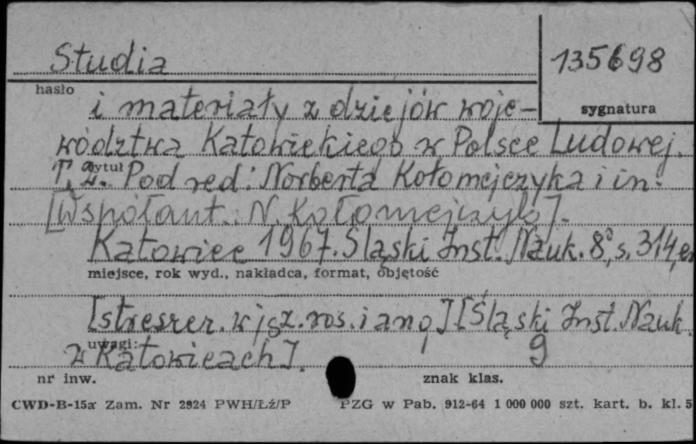 Studia
135698
hasło
sygnatura
i materiały z dziejów woje-
wództwa Katowickiego w Polsce Ludowej.
tytuł
T. 2. Pod red: Norberta Kołomejczyka i in.
[Współaut.: N. Kołomejczyk].
Katowice 1967. Śląski Inst. Nauk. 8°, s. 314,
miejsce, rok wyd., nakładca, format, objętość
[streszcz. w jęz. ros. i ang.] [Śląski Inst. Nauk.
uwagi:
w Katowicach].
nr inw.
znak klas.
CWD-B-15a Zam. Nr 2924 PWH/Łź/P
PZG w Pab. 912-64 1 000 000 szt. kart. b. kl. 5